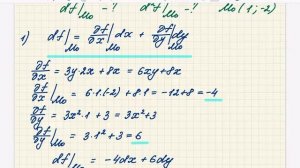 df|M₀ - ? d²f|M₀ - ? M₀(1; -2)
1) df|M₀ = ∂f/∂x|M₀ dx + ∂f/∂y|M₀ dy
∂f/∂x = 3y·2x + 8x = 6xy + 8x
∂f/∂x|M₀ = 6·1·(-2) + 8·1 = -12 + 8 = -4
∂f/∂y = 3x²·1 + 3 = 3x² + 3
∂f/∂y|M₀ = 3·1² + 3 = 6
df|M₀ = -4dx + 6dy